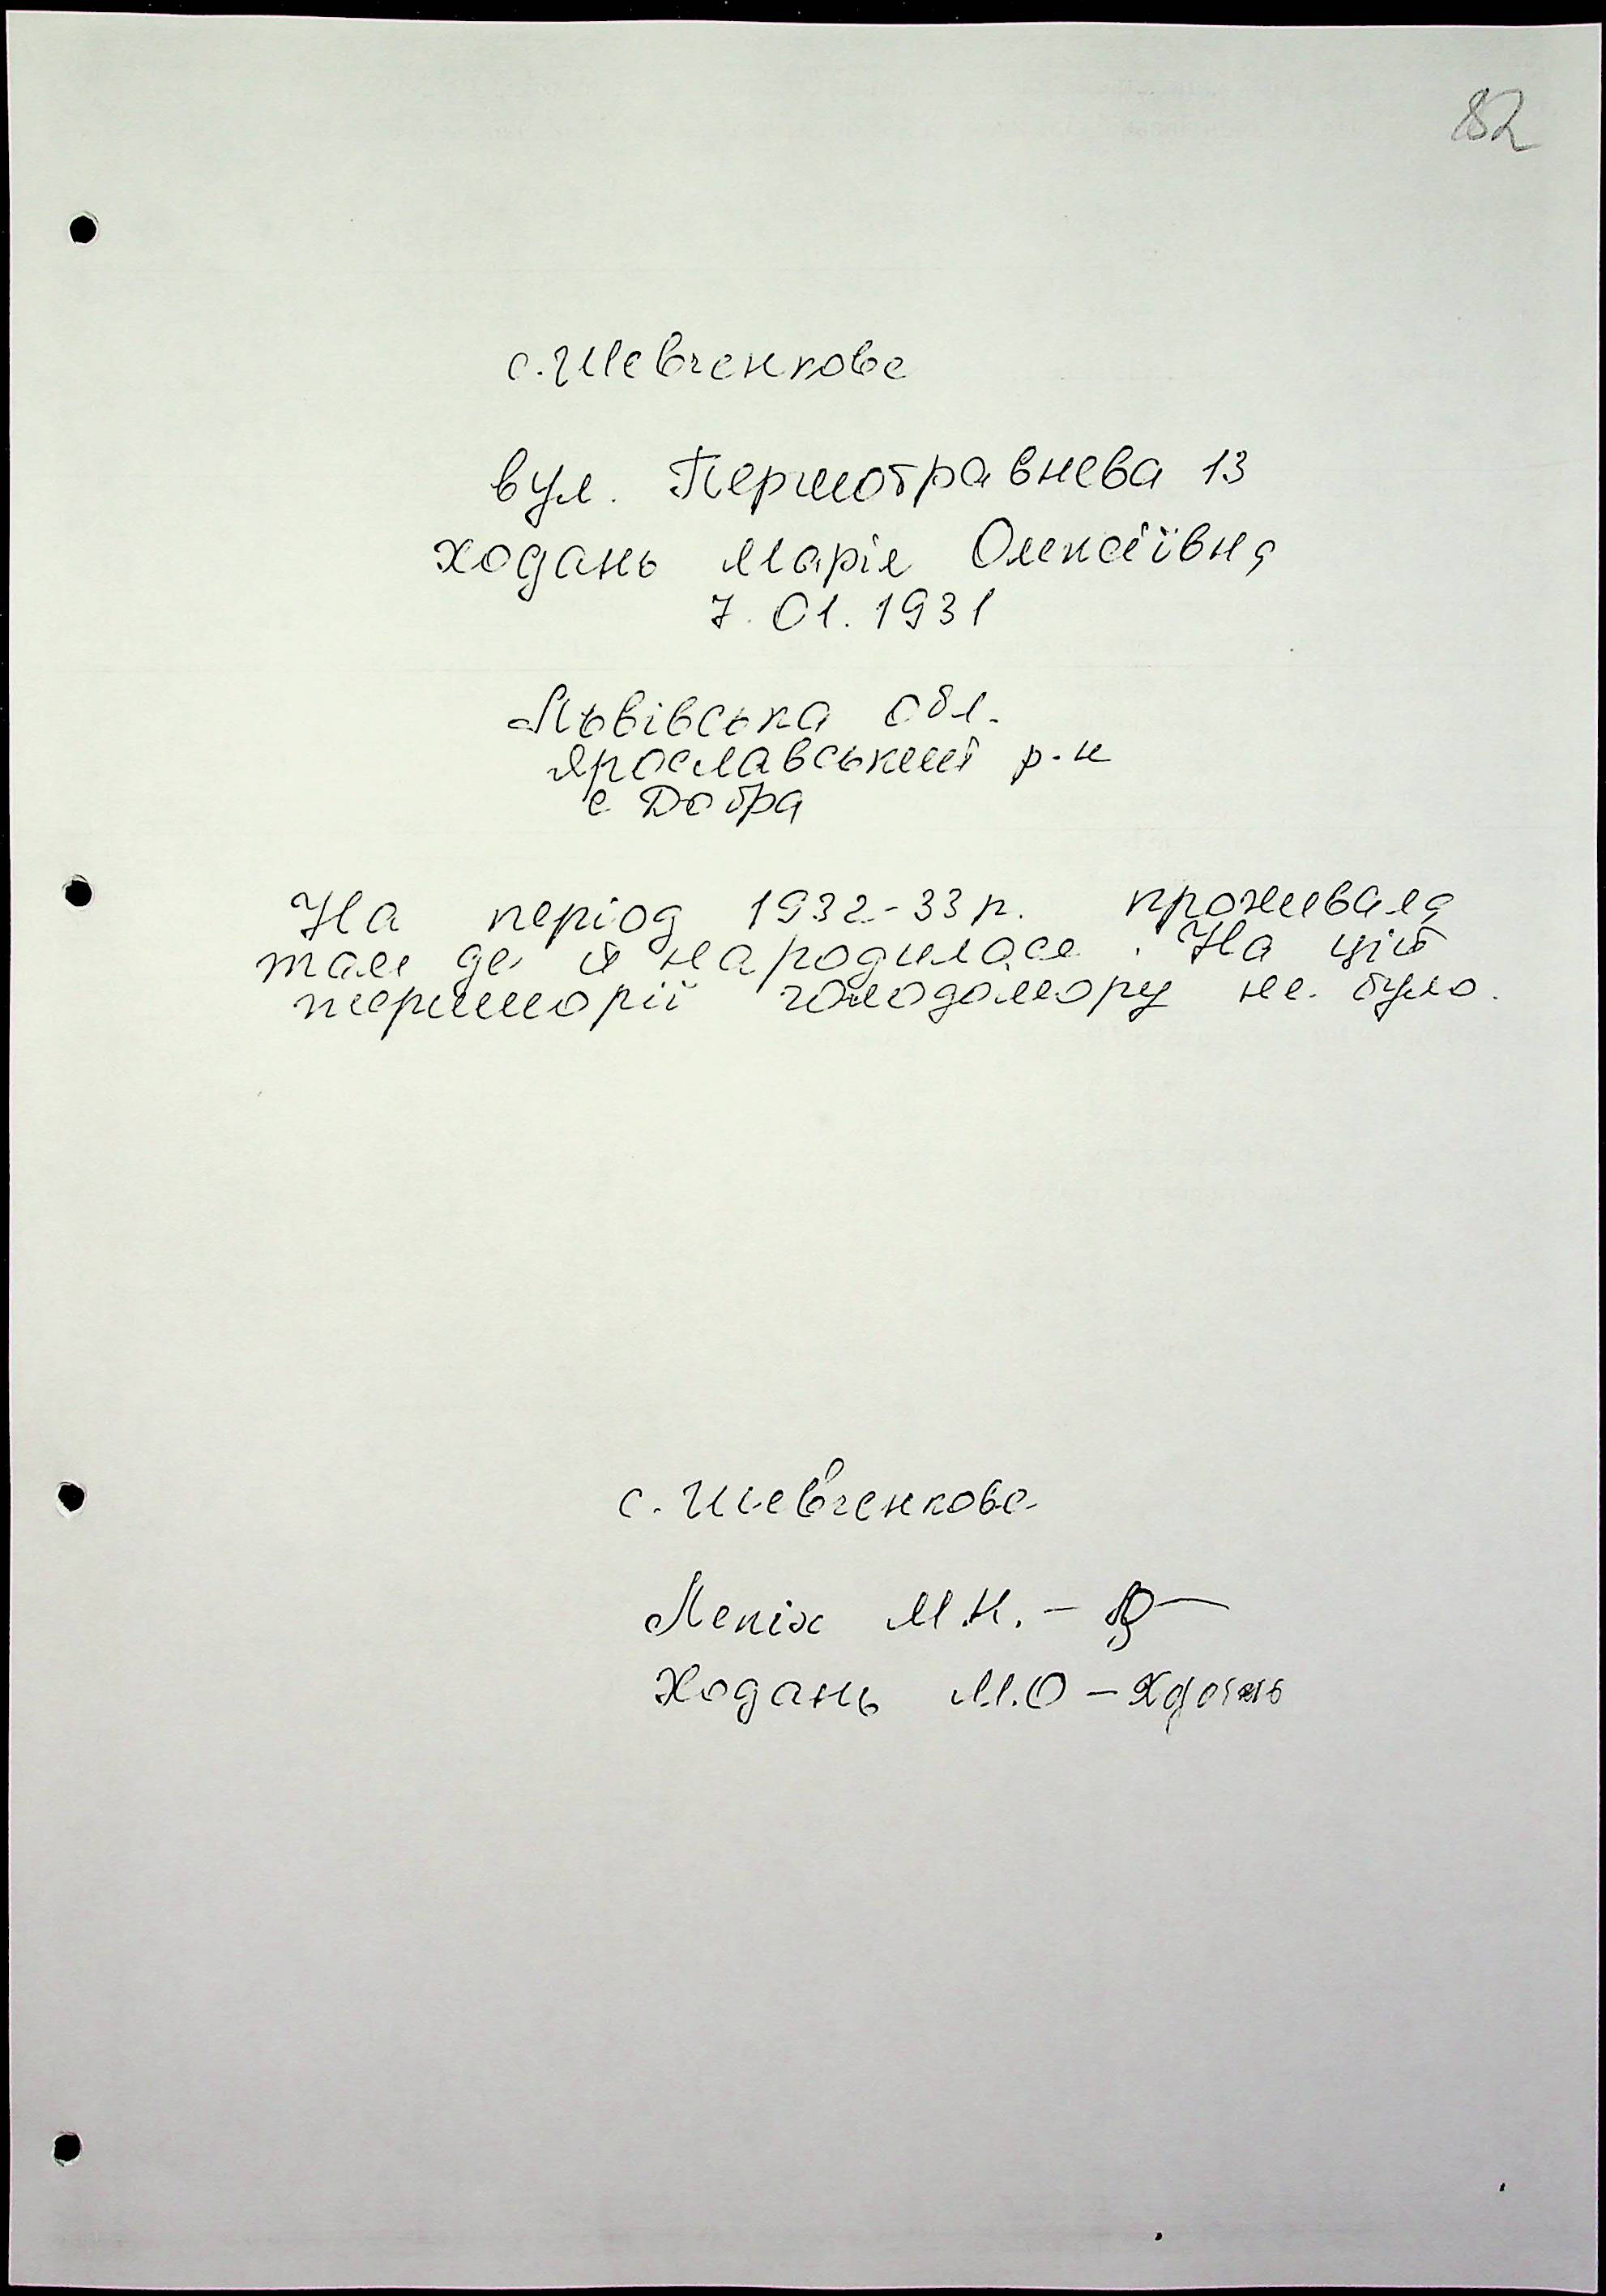 82
с. Шевченкове
вул. Першотравнева 13
Ходань Марія Олексіївна
7.01.1931
Львівська обл.
Ярославський р-н
с Добра
На період 1932-33 р. проживала
там де й народилася. На цій
території голодомору не було.
с. Шевченкове
Лепіх М.Н. –
Ходань М.О – Ходань